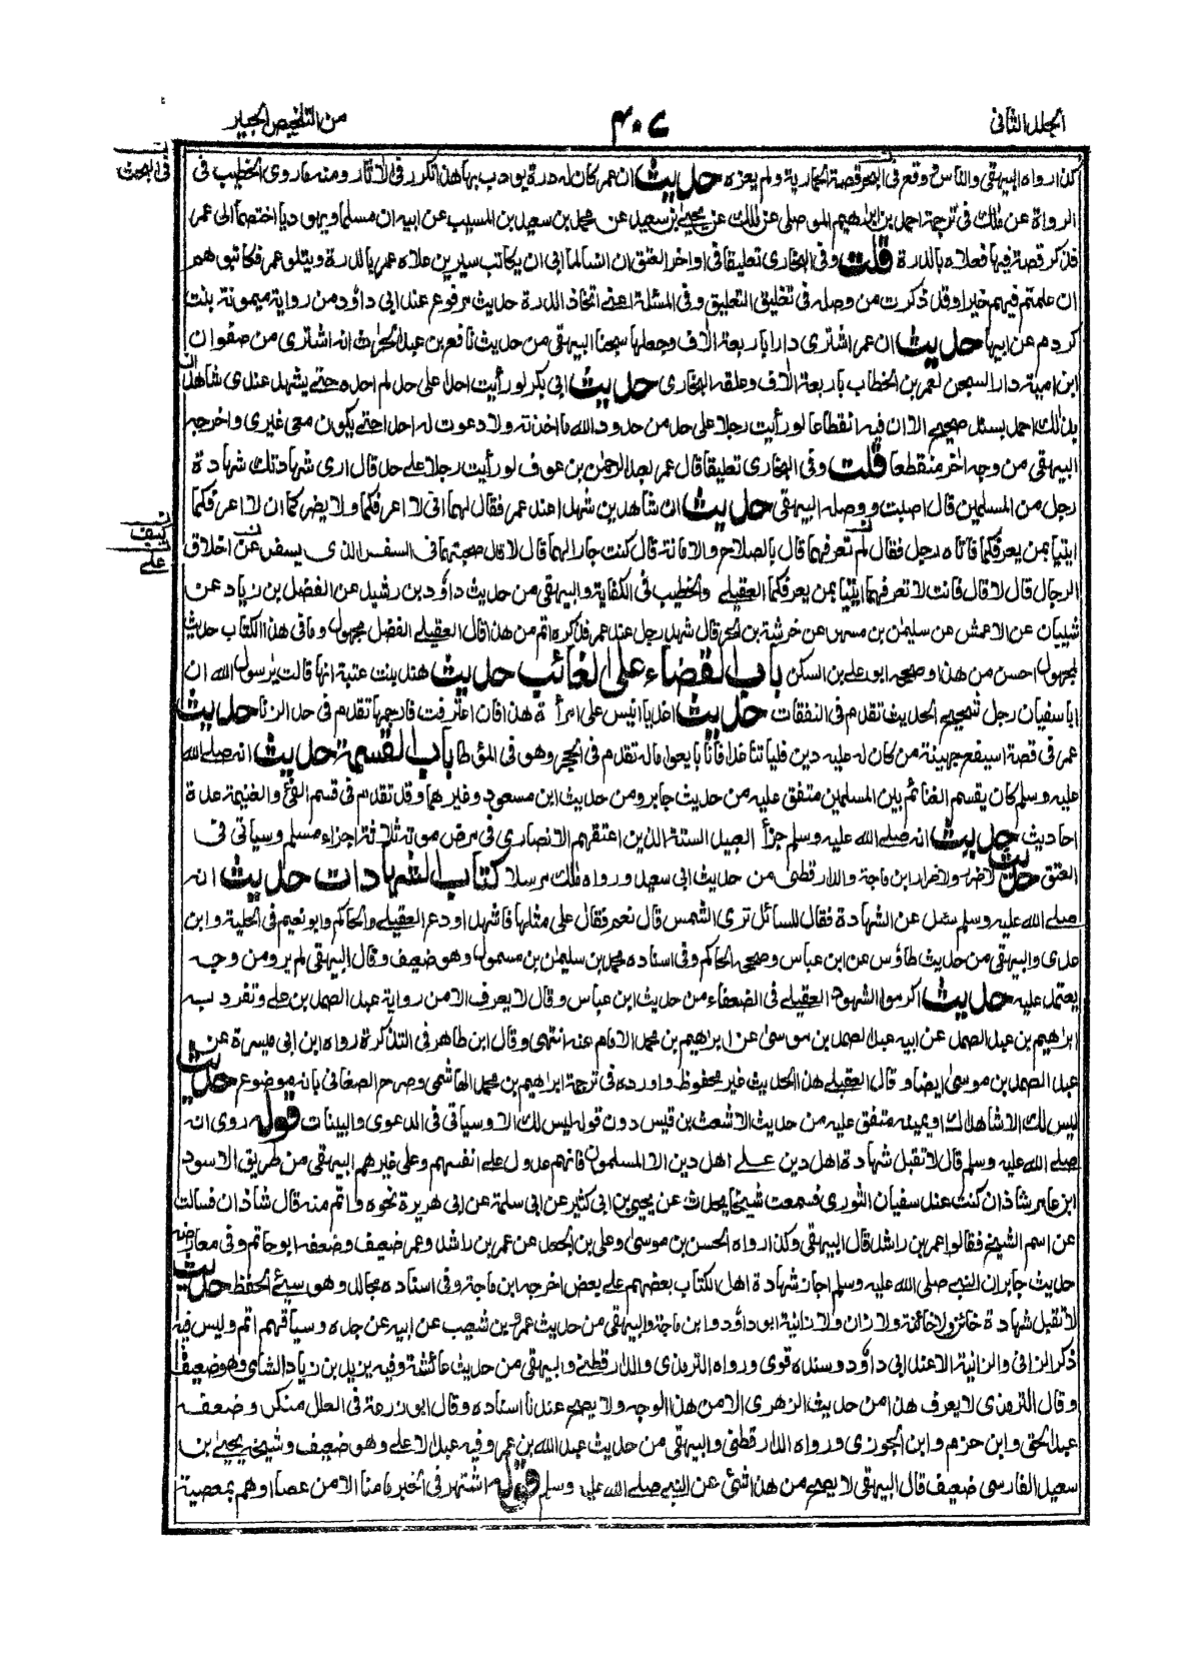 الجلد الثانى
٤٠٧
من التلخيص الحبير
كذا رواه البيهقى والناس وقع فى قصة الجارية ولم يعزه حديث ان عمر كان له درة يودب بها هذا تكرر فى الاثار ومنه ما روى الخطيب فى
فى البحث
الرواة عن مالك فى ترجمة احمد بن ابراهيم الموصلى عن مالك عن يحيى بن سعيد عن محمد بن سعيد بن المسيب عن ابيه ان مسلما ويهوديا اختصما الى عمر
فذكر قصة فيها فعلاه بالدرة قلت وفى البخارى تعليقا فى اواخر العتق ان انسا لما ابى ان يكاتب سيرين علاه عمر بالدرة ويتلو عمر فكاتبوهم
ان علمتم فيهم خيرا وقد ذكرت من وصله فى تغليق التعليق وفى المسئلة اعنى اتخاذ الدرة حديث مرفوع عند ابى داؤد من رواية ميمونة بنت
كردم عن ابيها حديث ان عمر اشترى دارا باربعة الاف وجعلها سجنا البيهقى من حديث نافع بن عبد الحرث انه اشترى من صفوان
ابن امية دار السجن لعمر بن الخطاب باربعة الاف وعلقه البخارى حديث ابى بكر لو رأيت احدا على حد لم احده حتى يشهد عندى شاهدان
بذلك احمد بسند صحيح الا ان فيه انقطاعا لو رأيت رجلا على حد من حدود الله ما اخذته ولا دعوت له احدا حتى يكون معى غيرى واخرجه
البيهقى من وجه اخر منقطعا قلت وفى البخارى تعليقا قال عمر لعبد الرحمن بن عوف لو رأيت رجلا على حد قال ارى شهادتك شهادة
رجل من المسلمين قال اصبت ووصله البيهقى حديث ان شاهدين شهدا عند عمر فقال لهما انى لا اعرفكما ولا يضركما ان لا اعرفكما
كيف
ايتيا بمن يعرفكما فاتاه رجل فقال لم تعرفهما قال بالصلاح والامانة قال كنت جارا لهما قال لا قال صحبتهما فى السفر الذى يسفر عن اخلاق
على
الرجال قال لا قال فانت لا تعرفهما ايتيا بمن يعرفكما العقيلى والخطيب فى الكفاية والبيهقى من حديث داؤد بن رشيد عن الفضل بن زياد عن
شيبان عن الاعمش عن سليمن بن مسهر عن خرشة بن الحر قال شهد رجل عند عمر فذكره اتم من هذا قال العقيلى الفضل مجهول وما فى هذا الكتاب حديث
لمجهول احسن من هذا وصححه ابو على بن السكن باب القضاء على الغائب حديث هند بنت عتبة انها قالت يرسول الله ان
ابا سفيان رجل شحيح الحديث تقدم فى النفقات حديث اغد يا انيس على امرأة هذا فان اعترفت فارجمها تقدم فى حد الزنا حديث
عمر فى قصة اسيفع جهينة من كان له عليه دين فليأتنا غدا فانا بايعوا ماله تقدم فى الحجر وهو فى المؤطا باب القسمة حديث انه صلى الله
عليه وسلم كان يقسم الغنائم بين المسلمين متفق عليه من حديث جابر ومن حديث ابن مسعود وغيرهما وقد تقدم فى قسم الفئ والغنيمة عدة
احاديث حديث انه صلى الله عليه وسلم جزأ العبيد الستة الذين اعتقهم الانصارى فى مرض موته ثلاثة اجزاء مسلم وسياتى فى
العتق حديث لا ضرر ولا ضرار ابن ماجة والدارقطنى من حديث ابى سعيد ورواه مالك مرسلا كتاب الشهادات حديث انه
صلى الله عليه وسلم سئل عن الشهادة فقال للسائل ترى الشمس قال نعم فقال على مثلها فاشهد او دع العقيلى والحاكم وابو نعيم فى الحلية وابن
عدى والبيهقى من حديث طاؤس عن ابن عباس وصححه الحاكم وفى اسناده محمد بن سليمن بن مسمول وهو ضعيف وقال البيهقى لم يرو من وجه
يعتمد عليه حديث اكرموا الشهود العقيلى فى الضعفاء من حديث ابن عباس وقال لا يعرف الا من رواية عبد الصمد بن على وتفرد به
ابرٰهيم بن عبد الصمد عن ابيه عبد الصمد بن موسىٰ عن ابرٰهيم بن محمد الامام عنه انتهى وقال ابن طاهر فى التذكرة رواه ابن ابى ميسرة عن
عبد الصمد بن موسى ايضا و قال العقيلى هذا الحديث غير محفوظ واورده فى ترجمة ابراهيم بن محمد الهاشمى وصرح الصغانى بانه موضوع حديث
ليس لك الا شاهداك او يمينه متفق عليه من حديث الاشعث بن قيس دون قوله ليس لك الا وسياتى فى الدعوى والبينات قوله روى انه
صلى الله عليه وسلم قال لا تقبل شهادة اهل دين على اهل دين الا المسلمون فانهم عدول على انفسهم وعلى غيرهم البيهقى من طريق الاسود
ابن عامر شاذان كنت عند سفيان الثورى فسمعت شيخا يحدث عن يحيى بن ابى كثير عن ابى سلمة عن ابى هريرة نحوه واتم منه قال شاذان فسالت
عن اسم الشيخ فقالوا عمر بن راشد قال البيهقى وكذا رواه الحسن بن موسىٰ وعلى بن الجعد عن عمر بن راشد وعمر ضعيف وضعفه ابو حاتم وفى معارضه
حديث جابر ان النبى صلى الله عليه وسلم اجاز شهادة اهل الكتاب بعضهم على بعض اخرجه ابن ماجة وفى اسناده مجالد وهو سيئ الحفظ حديث
لا تقبل شهادة خائن ولا خائنة ولا زان ولا زانية ابو داؤد وابن ماجة والبيهقى من حديث عمرو بن شعيب عن ابيه عن جده وسياقهم اتم وليس فيه
ذكر الزانى والزانية الا عند ابى داؤد وسنده قوى ورواه الترمذى والدارقطنى والبيهقى من حديث عائشة وفيه يزيد بن زياد الشامى وهو ضعيف
وقال الترمذى لا يعرف هذا من حديث الزهرى الا من هذا الوجه ولا يصح عندنا اسناده وقال ابو زرعة فى العلل منكر وضعفه
عبد الحق وابن حزم وابن الجوزى ورواه الدارقطنى والبيهقى من حديث عبد الله بن عمر وفيه عبد الاعلى وهو ضعيف وشيخه يحيى بن
سعيد الفارسى ضعيف قال البيهقى لا يصح من هذا شئ عن النبى صلى الله عليه وسلم قوله اشتهر فى الخبر ما منا الا من عصا او هم بمعصية